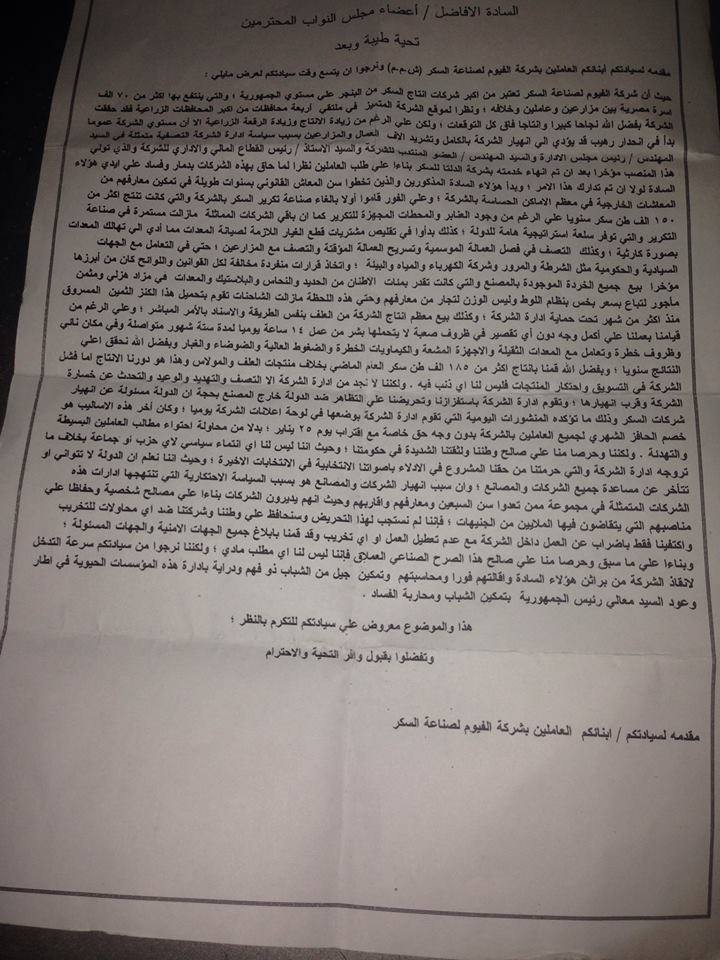 السادة الافاضل / أعضاء مجلس النواب المحترمين
تحية طيبة وبعد
مقدمه لسيادتكم أبنائكم العاملين بشركة الفيوم لصناعة السكر (ش.م.م) ونرجوا ان يتسع وقت سيادتكم لعرض مايلي :
حيث أن شركة الفيوم لصناعة السكر تعتبر من اكبر شركات انتاج السكر من البنجر علي مستوي الجمهورية ؛ والتي ينتفع بها اكثر من ٧٠ الف
اسرة مصرية بين مزارعين وعاملين وخلافه ؛ ونظرا لموقع الشركة المتميز في ملتقي أربعة محافظات من اكبر المحافظات الزراعية فقد حققت
الشركة بفضل الله نجاحا كبيرا وانتاجا فاق كل التوقعات ؛ ولكن علي الرغم من زيادة الانتاج وزيادة الرقعة الزراعية الا أن مستوي الشركة عموما
بدأ في انحدار رهيب قد يؤدي الي انهيار الشركة بالكامل وتشريد الاف العمال والمزارعين بسبب سياسة ادارة الشركة التصفية متمثلة في السيد
المهندس / رئيس مجلس الادارة والسيد المهندس / العضو المنتدب للشركة والسيد الاستاذ / رئيس القطاع المالي والاداري للشركة والذي تولي
هذا المنصب مؤخرا بعد ان تم انهاء خدمته بشركة الدلتا للسكر بناءا علي طلب العاملين نظرا لما حاق بهذه الشركات بدمار وفساد علي ايدي هؤلاء
السادة لولا ان تم تدارك هذا الامر ؛ وبدأ هؤلاء السادة المذكورين والذين تخطوا سن المعاش القانوني بسنوات طويلة في تمكين معارفهم من
المعاشات الخارجية في معظم الاماكن الحساسة بالشركة ؛ وعلي الفور قاموا أولا بالغاء صناعة تكرير السكر بالشركة والتي كانت تنتج اكثر من
١٥٠ الف طن سكر سنويا علي الرغم من وجود العنابر والمحطات المجهزة للتكرير كما ان باقي الشركات المماثلة مازالت مستمرة في صناعة
التكرير والتي توفر سلعة استراتيجية هامة للدولة ؛ كذلك بدأوا في تقليص مشتريات قطع الغيار اللازمة لصيانة المعدات مما أدي الي تهالك المعدات
بصورة كارثية ؛ وكذلك التصف في فصل العمالة الموسمية وتسريح العمالة المؤقتة والتصف مع المزارعين ؛ حتي في التعامل مع الجهات
السيادية والحكومية مثل الشرطة والمرور وشركة الكهرباء والمياه والبيئة ؛ واتخاذ قرارات منفردة مخالفة لكل القوانين واللوائح كان من أبرزها
مؤخرا بيع جميع الخردة الموجودة بالمصنع والتي كانت تقدر بمئات الاطنان من الحديد والنحاس والبلاستيك والمعدات في مزاد هزلي ومثمن
مأجور لتباع بسعر بخس بنظام اللوط وليس الوزن لتجار من معارفهم وحتي هذه اللحظة مازالت الشاحنات تقوم بتحميل هذا الكنز الثمين المسروق
منذ أكثر من شهر تحت حماية ادارة الشركة ؛ وكذلك بيع معظم انتاج الشركة من العلف بنفس الطريقة والاسناد بالأمر المباشر ؛ وعلي الرغم من
قيامنا بعملنا علي أكمل وجه دون أي تقصير في ظروف صعبة لا يتحملها بشر من عمل ١٤ ساعة يوميا لمدة ستة شهور متواصلة وفي مكان نائي
وظروف خطرة وتعامل مع المعدات الثقيلة والاجهزة المشعة والكيماويات الخطرة والضغوط العالية والضوضاء والغبار وبفضل الله نحقق اعلي
النتائج سنويا ؛ وبفضل الله قمنا بانتاج اكثر من ١٨٥ الف طن سكر العام الماضي بخلاف منتجات العلف والمولاس وهذا هو دورنا الانتاج اما فشل
الشركة في التسويق واحتكار المنتجات فليس لنا اي ذنب فيه . ولكننا لا نجد من ادارة الشركة الا التصف والتهديد والوعيد والتحدث عن خسارة
الشركة وقرب انهيارها ؛ وتقوم ادارة الشركة باستفزازنا وتحريضنا علي التظاهر ضد الدولة خارج المصنع بحجة ان الدولة مسئولة عن انهيار
شركات السكر وذلك ما تؤكده المنشورات اليومية التي تقوم ادارة الشركة بوضعها في لوحة اعلانات الشركة يوميا ؛ وكان آخر هذه الاساليب هو
خصم الحافز الشهري لجميع العاملين بالشركة بدون وجه حق خاصة مع اقتراب يوم ٢٥ يناير ؛ بدلا من محاولة احتواء مطالب العاملين البسيطة
والتهدئة . ولكننا وحرصا منا علي صالح وطننا ولثقتنا الشديدة في حكومتنا ؛ وحيث اننا ليس لنا اي انتماء سياسي لاي حزب أو جماعة بخلاف ما
تروجه ادارة الشركة والتي حرمتنا من حقنا المشروع في الادلاء باصواتنا الانتخابية في الانتخابات الاخيرة ؛ وحيث اننا نعلم ان الدولة لا تتواني او
تتأخر عن مساعدة جميع الشركات والمصانع ؛ وان سبب انهيار الشركات والمصانع هو بسبب السياسة الاحتكارية التي تنتهجها ادارات هذه
الشركات المتمثلة في مجموعة ممن تعدوا سن السبعين ومعارفهم واقاربهم وحيث انهم يديرون الشركات بناءا علي مصالح شخصية وحفاظا علي
مناصبهم التي يتقاضون فيها الملايين من الجنيهات ؛ فإننا لم نستجب لهذا التحريض وسنحافظ علي وطننا وشركتنا ضد اي محاولات للتخريب
واكتفينا فقط باضراب عن العمل داخل الشركة مع عدم تعطيل العمل او اي تخريب وقد قمنا بابلاغ جميع الجهات الامنية والجهات المسئولة ؛
وبناءا علي ما سبق وحرصا منا علي صالح هذا الصرح الصناعي العملاق فإننا ليس لنا اي مطلب مادي ؛ ولكننا نرجوا من سيادتكم سرعة التدخل
لانقاذ الشركة من براثن هؤلاء السادة واقالتهم فورا ومحاسبتهم وتمكين جيل من الشباب ذو فهم ودراية بادارة هذه المؤسسات الحيوية في اطار
وعود السيد معالي رئيس الجمهورية بتمكين الشباب ومحاربة الفساد .
هذا والموضوع معروض علي سيادتكم للتكرم بالنظر ؛
وتفضلوا بقبول وافر التحية والاحترام
مقدمه لسيادتكم / ابنائكم العاملين بشركة الفيوم لصناعة السكر